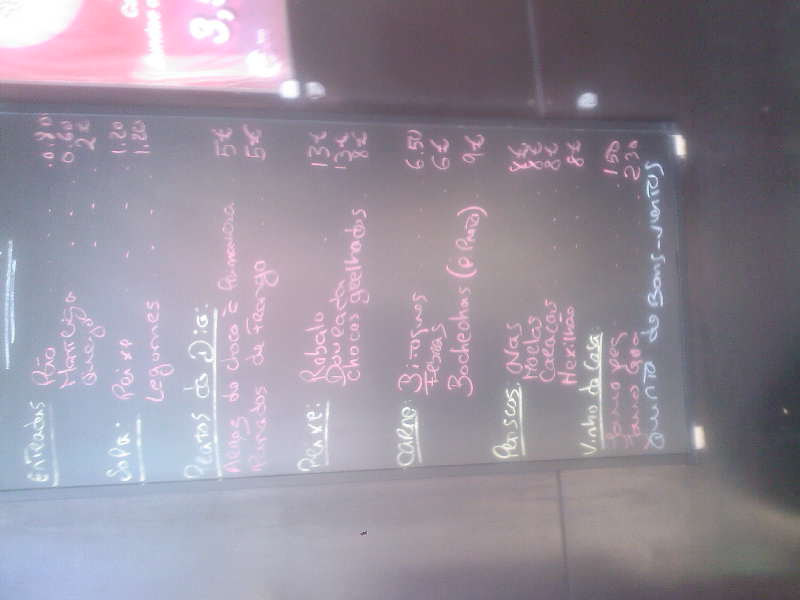 Entradas
Pão .. 0.80
Manteiga .. 0.60
Queijo .. 2€
Sopa:
Peixe .. 1.20
Legumes .. 1.20
Pratos do Dia:
5€
Panados de Frango 5€
Peixe:
Robalo .. 13€
Dourada .. 13€
Chocos grelhados 8€
Carne:
Bitoques .. 6.50
Febras .. 6€
Bochechas (P. Preto) 9€
Petiscos:
Ovas .. 8€
Moelas .. 8€
Caracas .. 8€
Mexilhão .. 8€
Vinho da Casa:
Jarro .. 1.50
Jarro .. 2.30
Quinta do Bons-Ventos